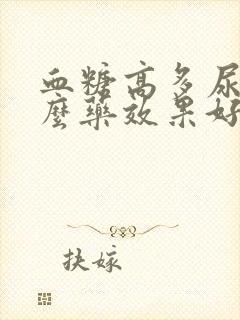 血糖高多尿
麼藥效果好
扶嫁